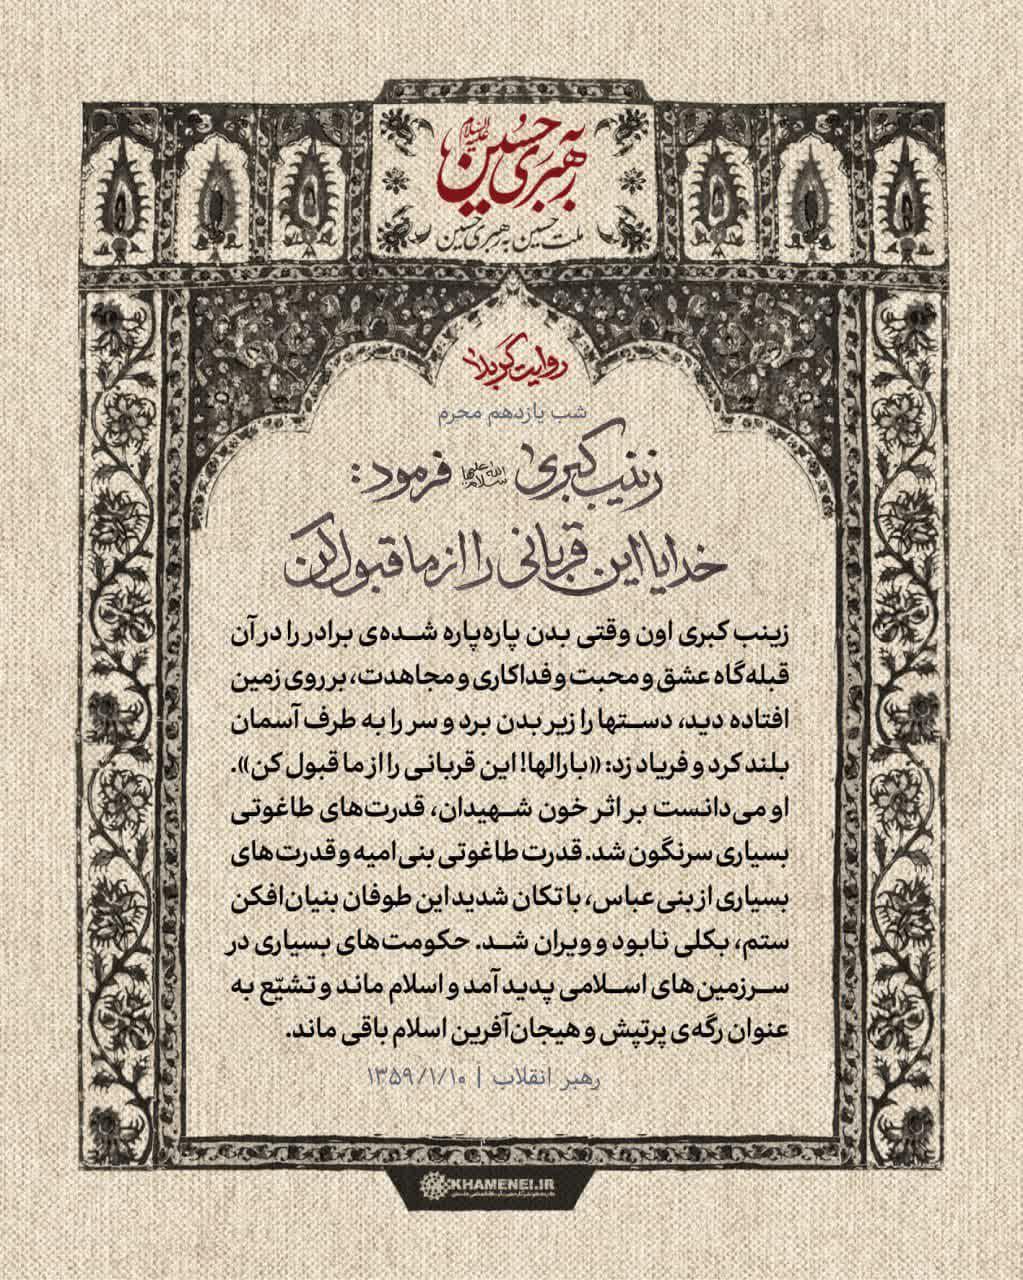 به رهبری حسین علیه‌السلام
ملت حسین به رهبری حسین
روایت کربلا
شب یازدهم محرم
زینب کبری سلام‌الله‌علیها فرمود:
خدایا این قربانی را از ما قبول کن
زینب کبری اون وقتی بدن پاره‌پاره شده‌ی برادر را در آن
قبله‌گاه عشق و محبت و فداکاری و مجاهدت، بر روی زمین
افتاده دید، دستها را زیر بدن برد و سر را به طرف آسمان
بلند کرد و فریاد زد: «بارالها! این قربانی را از ما قبول کن».
او می‌دانست بر اثر خون شهیدان، قدرت‌های طاغوتی
بسیاری سرنگون شد. قدرت طاغوتی بنی امیه و قدرت های
بسیاری از بنی عباس، با تکان شدید این طوفان بنیان‌افکن
ستم، بکلی نابود و ویران شد. حکومت‌های بسیاری در
سرزمین‌های اسلامی پدید آمد و اسلام ماند و تشیّع به
عنوان رگه‌ی پرتپش و هیجان‌آفرین اسلام باقی ماند.
رهبر انقلاب | ۱۳۵۹/۱/۱۰
KHAMENEI.IR